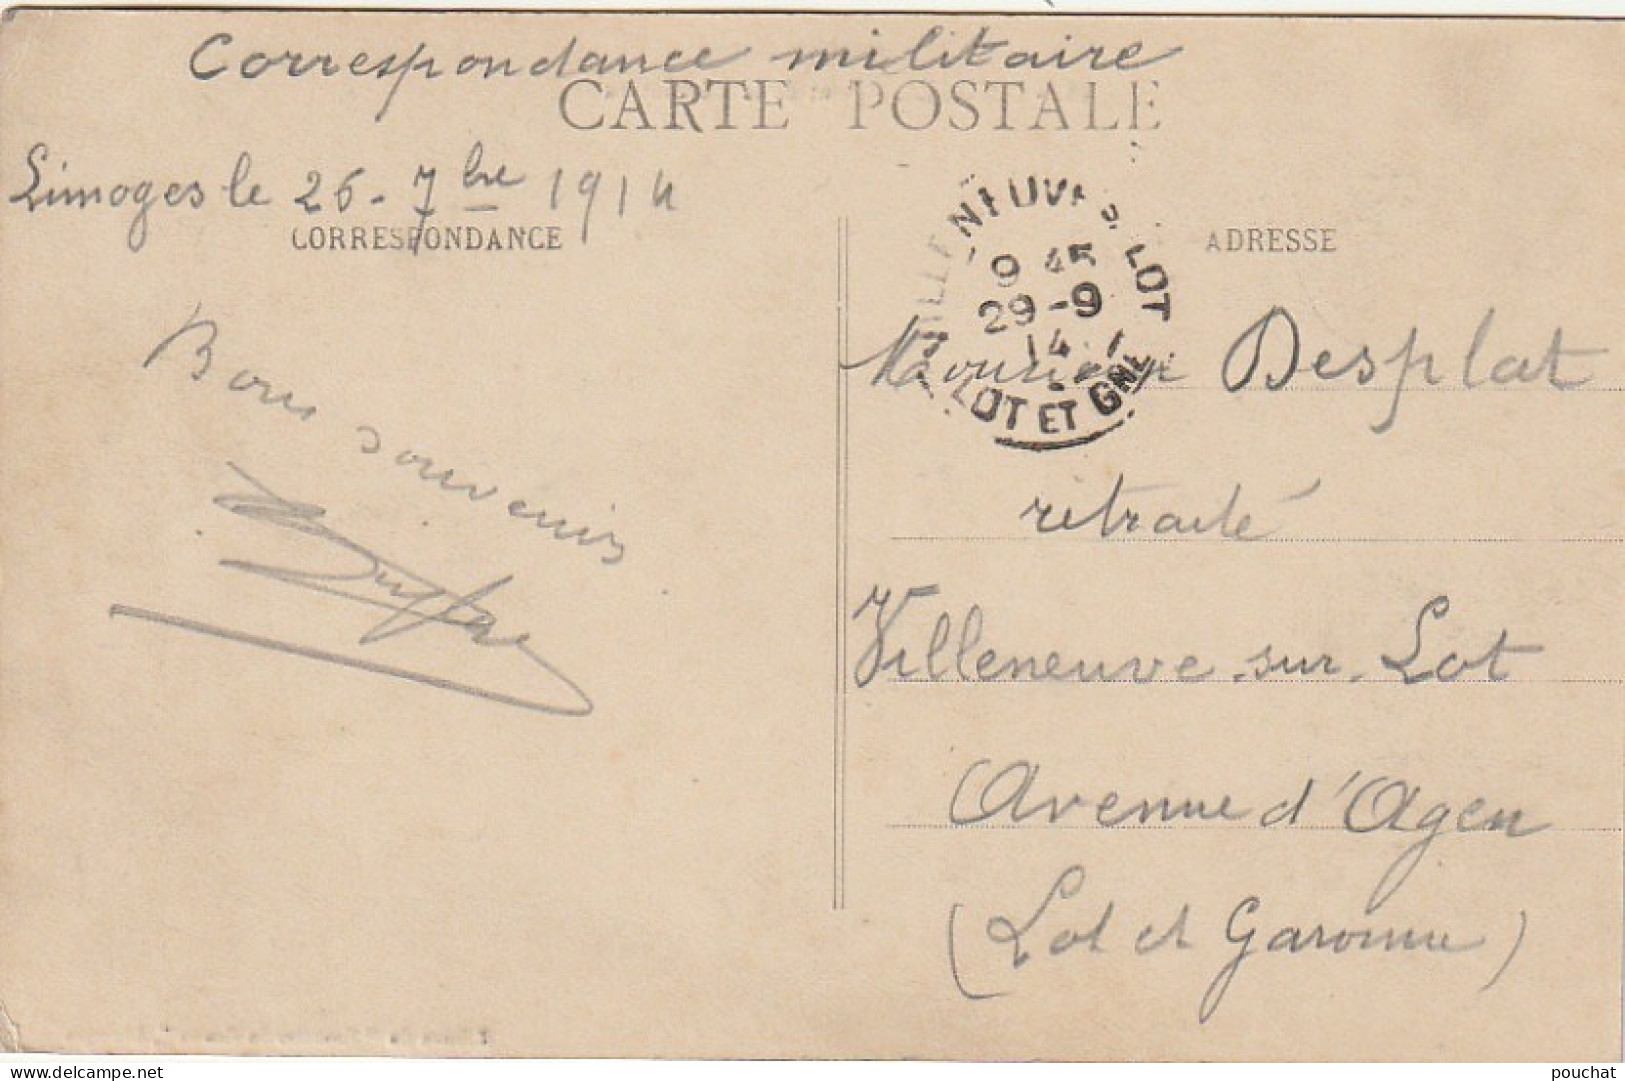 Correspondance militaire
CARTE POSTALE
Limoges le 26-7bre 1914
CORRESPONDANCE
ADRESSE
VILLENEUVE S. LOT
9 45
29-9
14
LOT ET GNE
Bons souvenirs
Monsieur Desplat
retraité
Villeneuve-sur-Lot
Avenue d'Agen
(Lot et Garonne)
pouchat